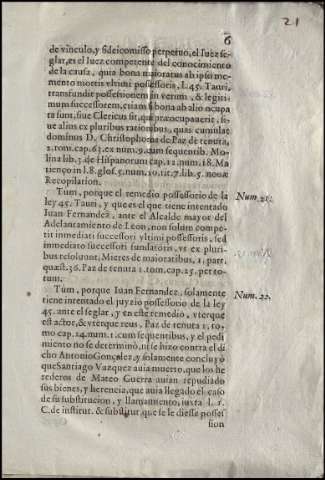 21
6
de vinculo, y fideicomisso perpetuo, el Iuez se
glar, es el Iuez competente del conocimiento
de la causa, quia bona maioratus ab ipsi mo
mento mortis vltimi possessoris, L. 45. Tauri,
transfundit possessionem in verum, & legiti-
mum successorem, etiam si bona ab alio occupa
ta sunt, siue Clericus sit, qui præocupauerit, si-
ue alius ex pluribus rationibus, quas cumulat
dominus D. Christophorus de Paz de tenuta,
2. tom. cap. 63. ex num. 9. cum sequentib. Mo
lina lib. 3. de Hispanorum cap. 12. num. 18. Ma
tienço in l. 8. glos. 5. num. 10. tit. 7. lib. 5. nouæ
Recopilation.
Tum, porque el remedio possessorio de la
ley 45. Tauri, y que es el que tiene intentado
Iuan Fernandez, ante el Alcalde mayor del
Adelantamiento de Leon, non solùm compe-
tit inmediati successori vltimi possessoris, sed
inmediato successori fundatoris, vt ex pluri-
bus resoluunt, Mieres de maioratibus, 1. part.
quæst. 36. Paz de tenuta 1. tom. cap. 25. per to-
tum.
Num. 21.
Tùm, porque Iuan Fernandez, solamente
tiene intentado el juyzio possessorio de la ley
45. ante el seglar, y en este remedio, vterque
est actor, & vterque reus, Paz de tenuta 1. to,
mo cap. 24. num. 1. cum sequentibus, y el pedi
miento no se determinò, ni se hizo contra el di
cho Antonio Gonçalez, y solamente concluyó
que Santiago Vazquez auia muerto, que los he
rederos de Mateo Guerra auian repudiado
sus bienes, y herencia, que auia llegado el caso
de su substitucion, y llamamiento, iuxta L. 1.
C. de institut. & substitut. que se le diesse posses
sion
Num. 22.